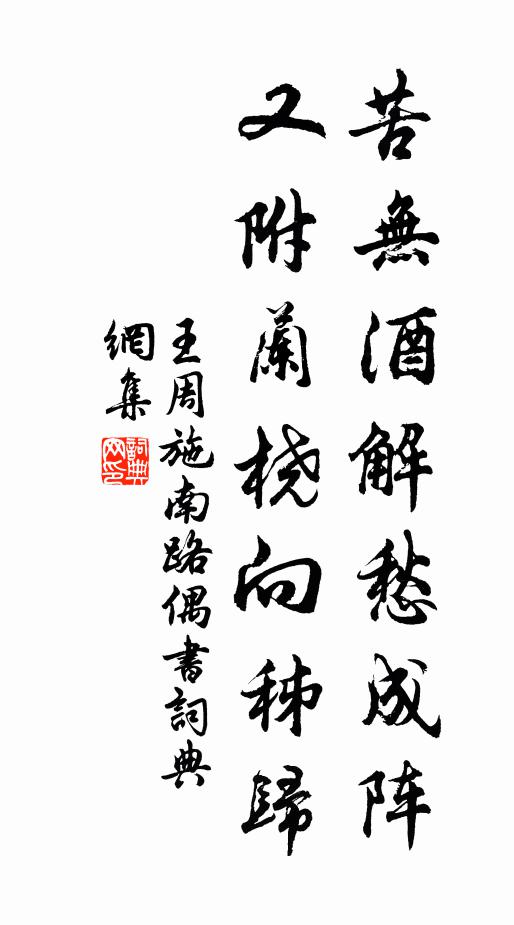 苦無酒解愁成阵
又附蘭桡向秭歸
王周施南路偶書詞典
網集
詞典